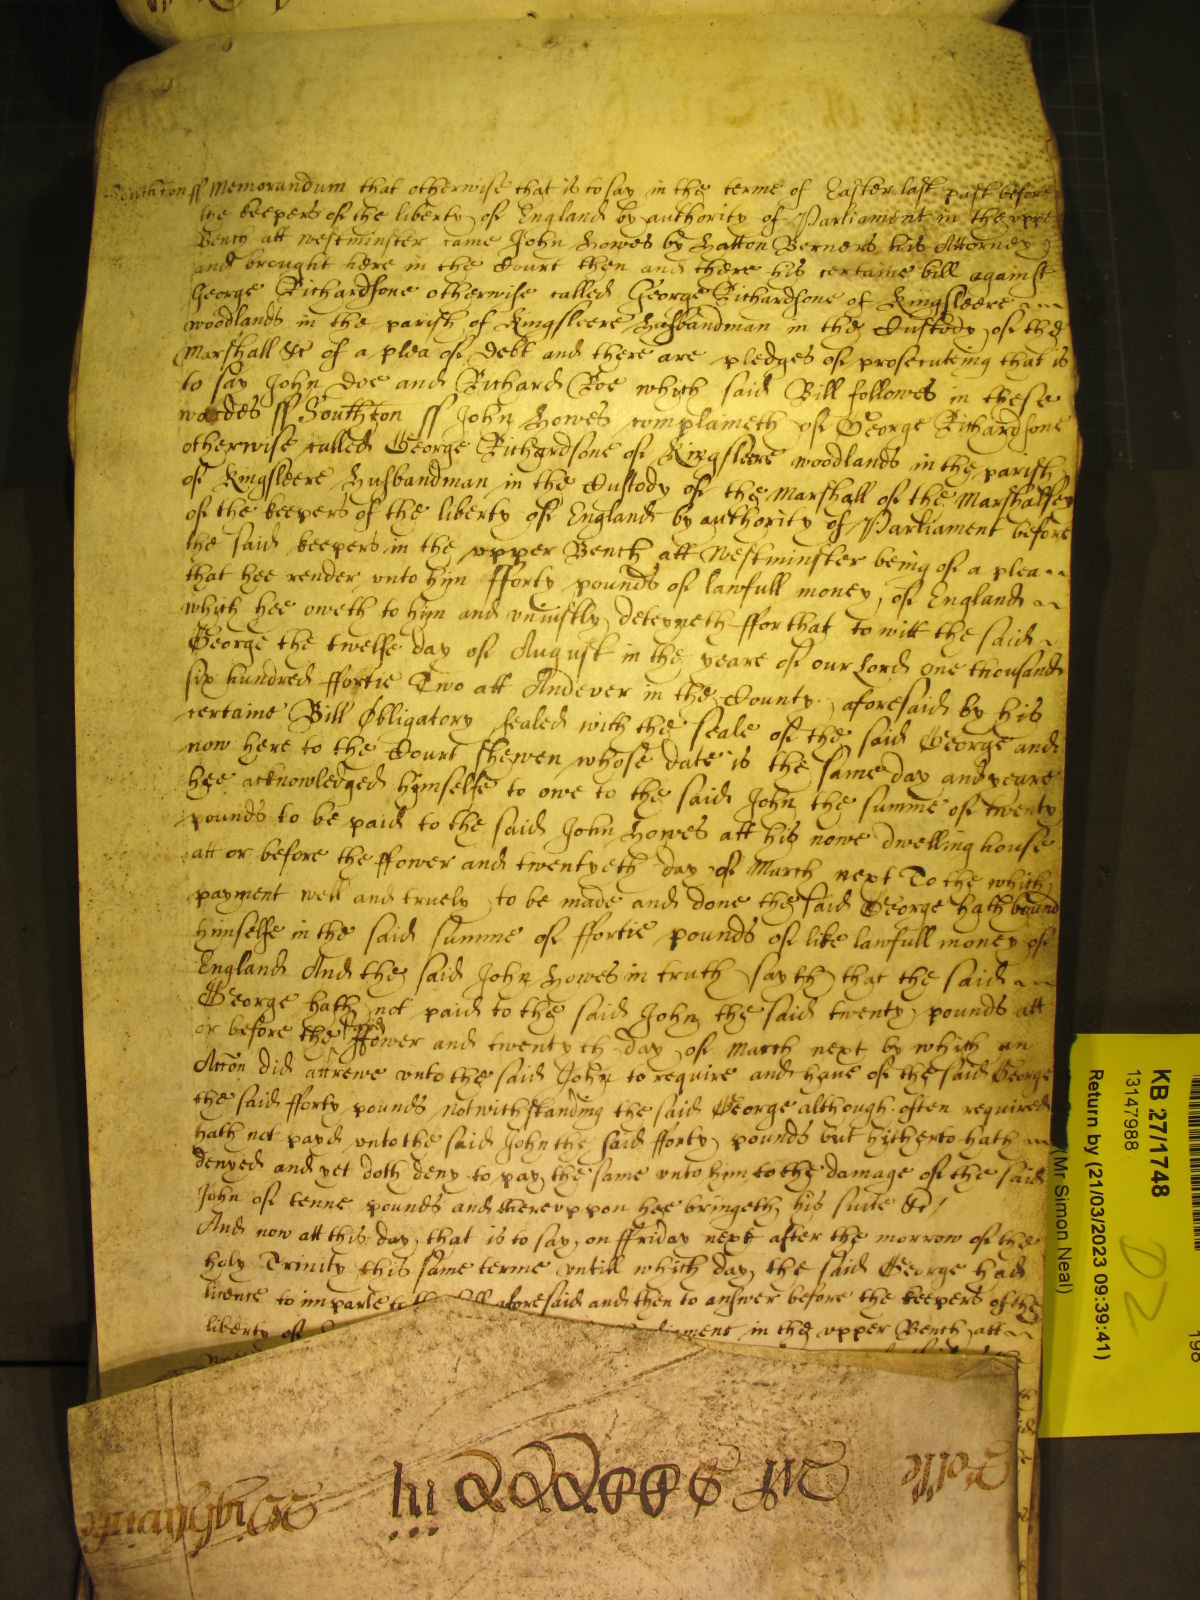 Southton ss Memorandum that otherwise that is to say in the terme of Easter last past before
the keepers of the liberty of England by authority of Parliament in the upper
Bench att Westminster came John Howes by Hatton Berners his Attorney
and brought here in the Court then and there his certaine bill against
George Richardsone otherwise called George Richardsone of Kingsleere
woodlands in the parish of Kingsleere Husbandman in the Custody of the
Marshall &c of a plea of Debt and there are pledges of prosecuteing that is
to say John Doe and Richard Roe which said Bill followes in these
wordes ss Southton ss John Howes complaineth of George Richardsone
otherwise called George Richardsone of Kingsleere woodlands in the parish
of Kingsleere Husbandman in the Custody of the Marshall of the Marshalsey
of the keepers of the liberty of England by authority of Parliament before
the said keepers in the upper Bench att Westminster being of a plea
that hee render vnto hym fforty pounds of lawfull money of England
which hee oweth to hym and vniustly deteyneth ffor that to witt the said
George the twelfe day of August in the yeare of our Lord one thousand
six hundred ffortie Two att Andever in the County aforesaid by his
certaine Bill Obligatory sealed with the seale of the said George and
now here to the Court shewen whose date is the same day and yeare
hee acknowledged hymselfe to owe to the said John the summe of twenty
pounds to be paid to the said John Howes att his nowe dwelling house
att or before the ffower and twentyeth day of March next To the which
payment well and truely to be made and done the said George hath bound
hymselfe in the said summe of ffortie pounds of like lawfull money of
England And the said John Howes in truth sayth that the said
George hath not paid to the said John the said twenty pounds att
or before the said ffower and twentyth day of March next by which an
Accon did accrewe vnto the said John to require and haue of the said George
the said fforty pounds notwithstanding the said George although often required
hath not payd vnto the said John the said fforty pounds but hitherto hath
denyed and yet doth deny to pay the same vnto hym to the damage of the said
John of tenne pounds and therevppon hee bringeth his suite &c
And now att this day that is to say on ffriday next after the morrow of the
holy Trinity this same terme vntill which day the said George had
licence to imparle to aforesaid and then to answer before the keepers of the
liberty of in the vpper Bench att
Rolle
KB 27/1748
13147988
Return by (21/03/2023 09:39:41)
(Mr Simon Neal)
D2
198